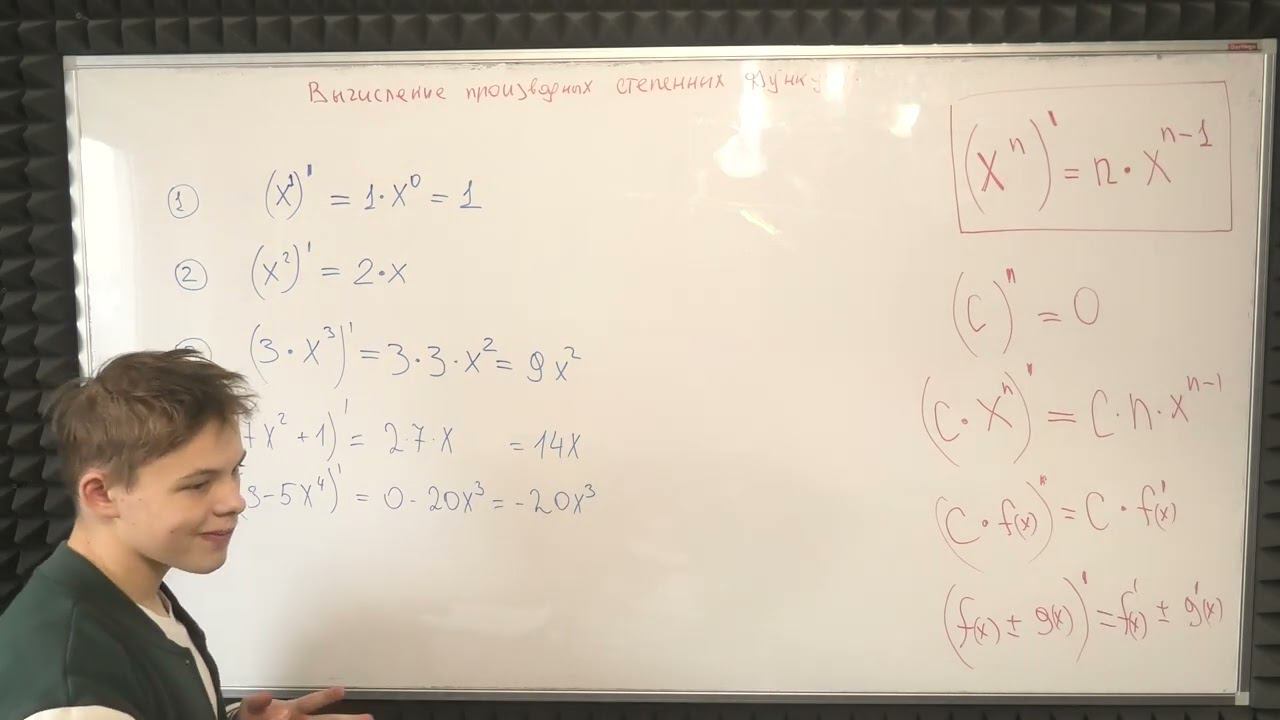 Вычисление производных степенных функ
① (x¹)' = 1·x⁰ = 1
② (x²)' = 2·x
(3·x³)' = 3·3·x² = 9x²
x² + 1)' = 2·7·x = 14x
3 - 5x⁴)' = 0 - 20x³ = -20x³
(xⁿ)' = n·xⁿ⁻¹
(C)ⁿ = 0
(C·xⁿ)' = C·n·xⁿ⁻¹
(C·f(x))' = C·f'(x)
(f(x) ± g(x))' = f'(x) ± g'(x)